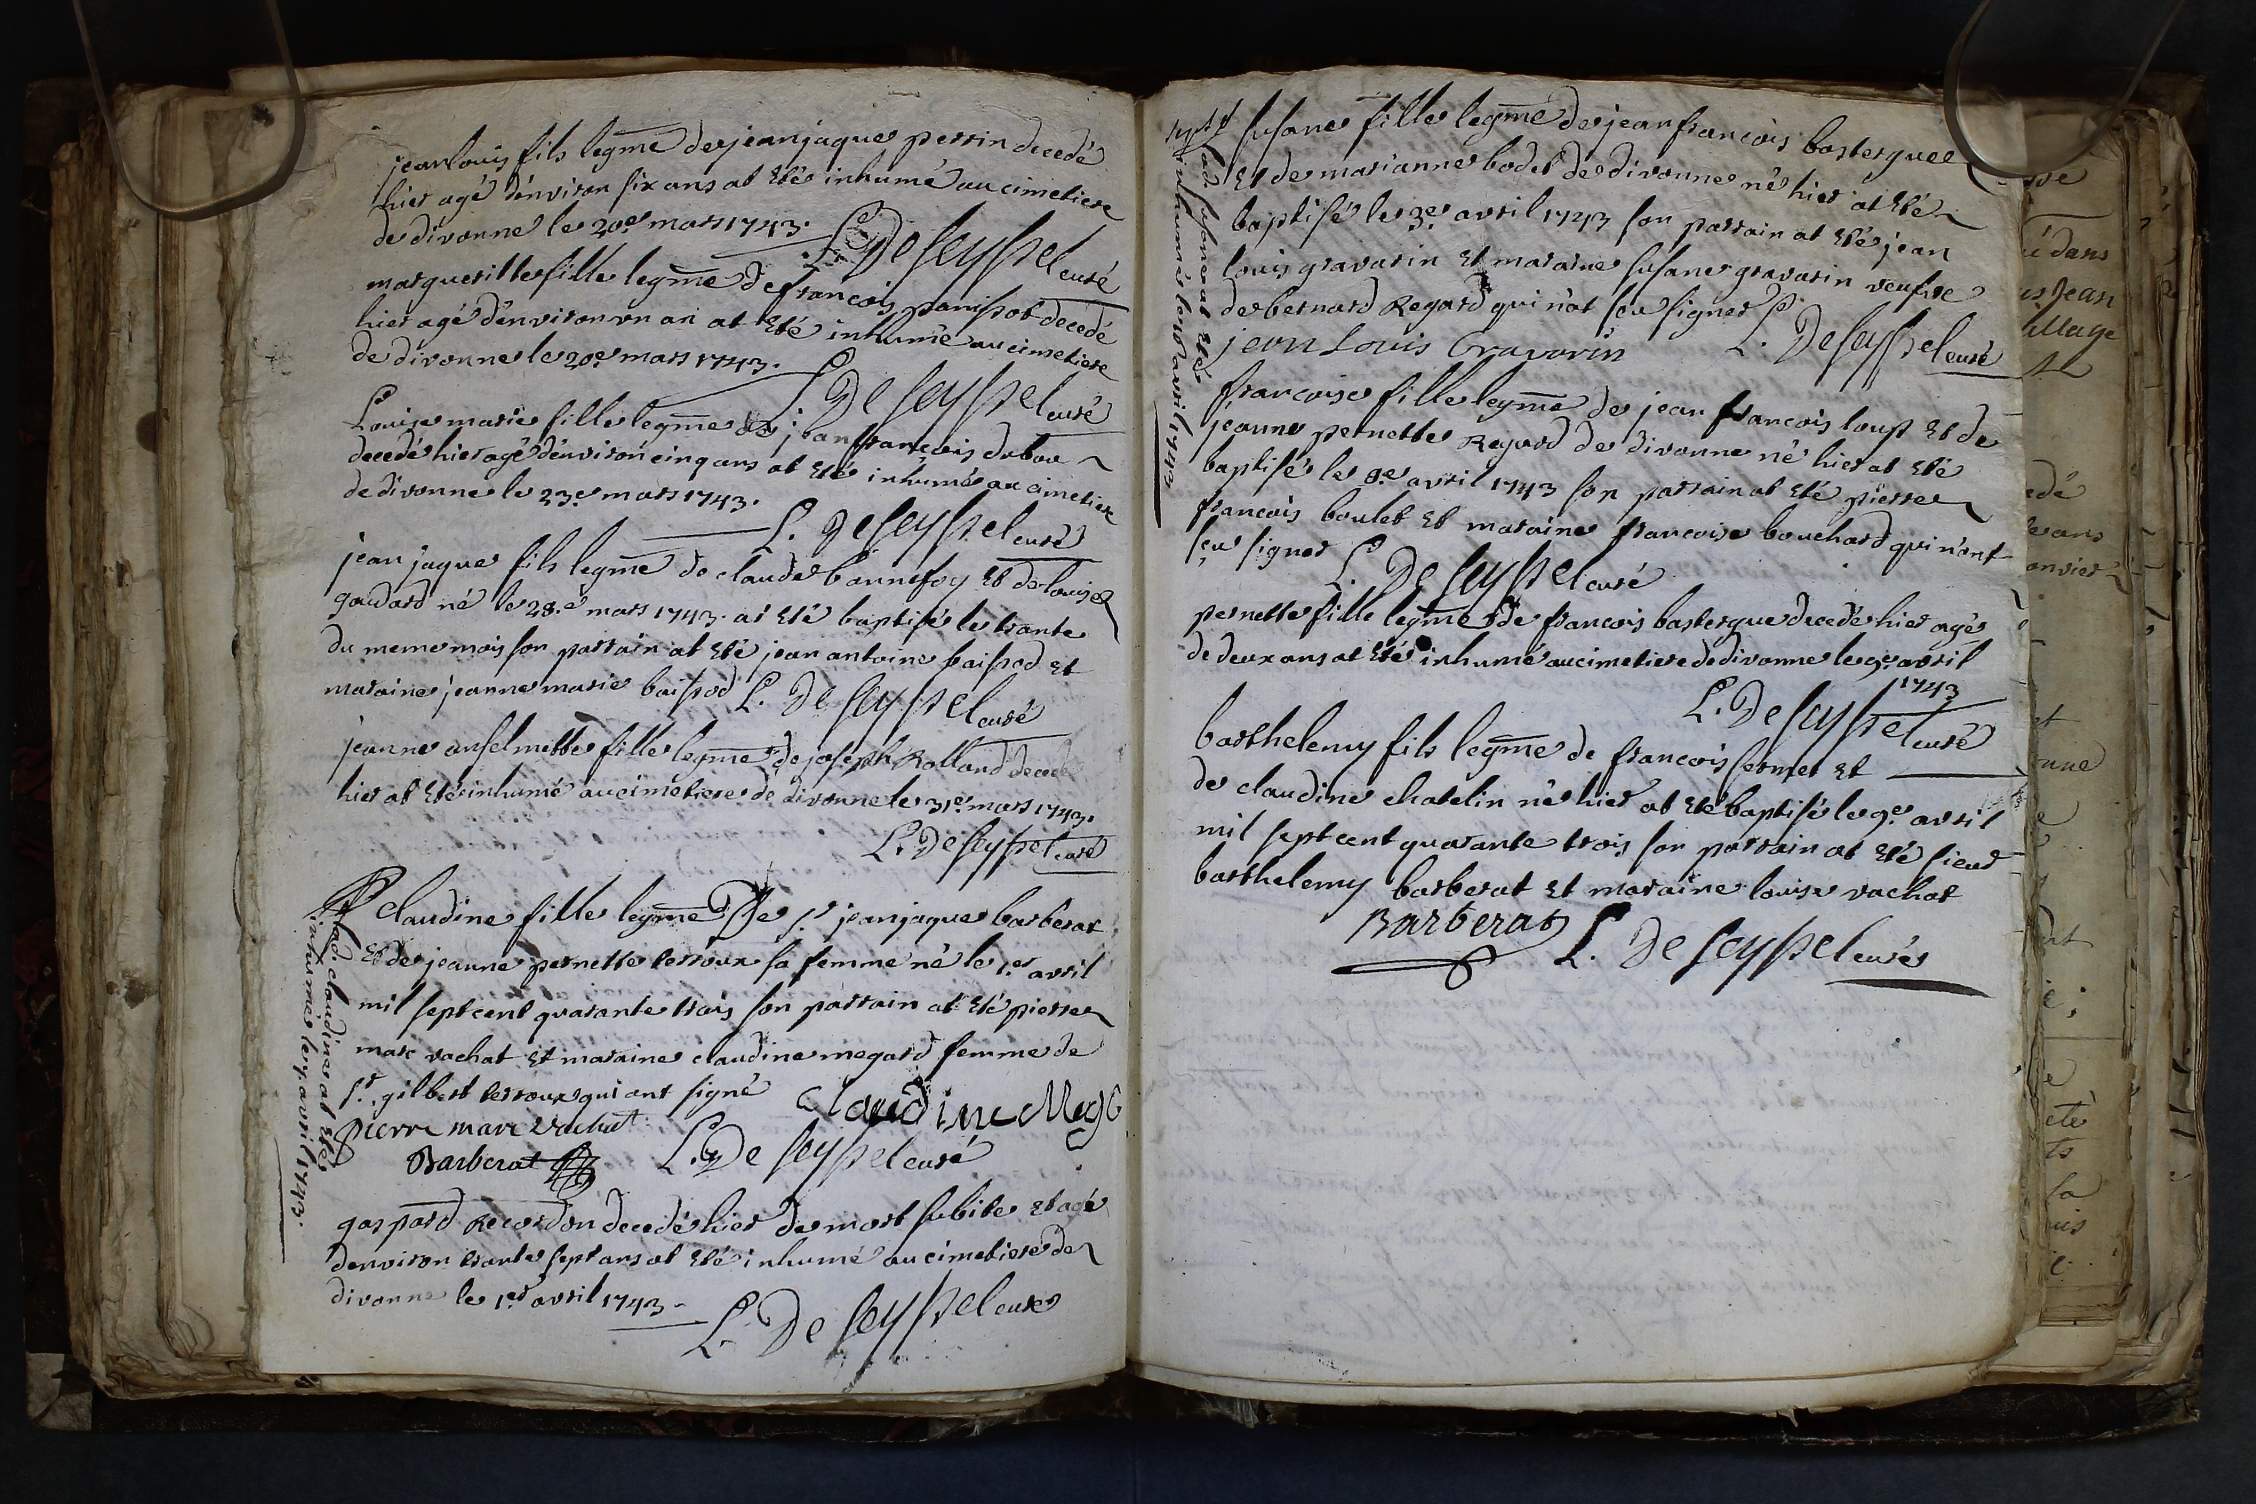 jean louis fils legme de jean jaque perrin decedé
hier agé d'environ six ans at eté inhumé au cimetiere
de divonne le 20e mars 1743.
L. De Seyssel curé
margueritte fille legme de francois panissot decedé
hier agé d'environ un an at eté inhumé au cimetiere
de divonne le 20e mars 1743.
L. De Seyssel curé
Louise marie fille legme de jean francois dubou
decedé hier agé d'environ cinq ans at eté inhumé au cimetiere
de divonne le 23e mars 1743.
L. De Seyssel curé
jean jaque fils legme de claude bonnefoy et de louise
goudard né le 28.e mars 1743. at eté baptisé le trante
du meme mois son parrain at eté jean antoine baissod et
maraine jeanne marie baissod L. De Seyssel curé
jeanne anselmette fille legme de joseph Rolland decedé
hier at eté inhumé au cimetiere de divonne le 31e mars 1743.
L. De Seyssel curé
claudine fille legme De sr jean jaque barberat
et de jeanne pernette terroux sa femme né le 1er avril
mil sept cent quarante trois son parrain at eté pierre
marc vachat et maraine claudine megard femme de
sr. gilbert terroux qui ont signé
claudine Meg
pierre marc vachat
Barberat L. De Seyssel curé
lad. claudine at eté
inhumé le 7. avril 1743.
gaspard Recordon decedé hier de mort subite et agé
d'environ trante sept ans at eté inhumé au cimetiere de
divonne le 1er avril 1743
L. De Seyssel curé
susane fille legme de jean francois bastergue
et de marianne bodet de divonne né hier at eté
baptisé le 3e avril 1743 son parrain at eté jean
louis gravarin et maraine susane gravarin veufve
de bernard Regard qui n'at seu signer
jean Louis Gravarin L. De Seyssel curé
lad. susane at eté
inhumé le avril 1743
francoise fille legme de jean francois loup et de
jeanne pernette Regard de divonne né hier at eté
baptisé le 8e avril 1743 son parrain at eté pierre
francois boulet et maraine francoise bouchard qui n'ont
seu signer L. De Seyssel curé
pernette fille legme de francois bastergue decedé hier agé
de deux ans at eté inhumé au cimetiere de divonne le 9e avril
1743
L. De Seyssel curé
barthelemy fils legme de francois sermet et
de claudine chatelin né hier at eté baptisé le 9e avril
mil sept cent quarante trois son parrain at eté sieur
barthelemy barberat et maraine louise vachat
Barberat L. De Seyssel curé